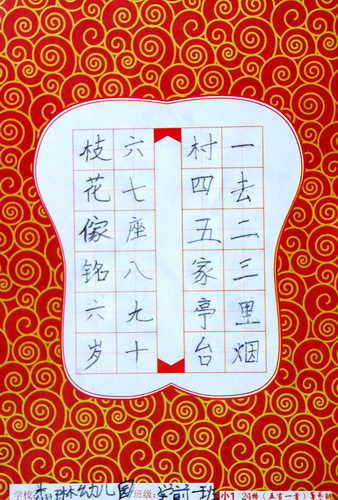 一去二三里烟
村四五家亭台
六七座八九十
枝花傢铭六岁
学校: 琳幼儿园 班级: 学前一班 小1 24格(五言一首)